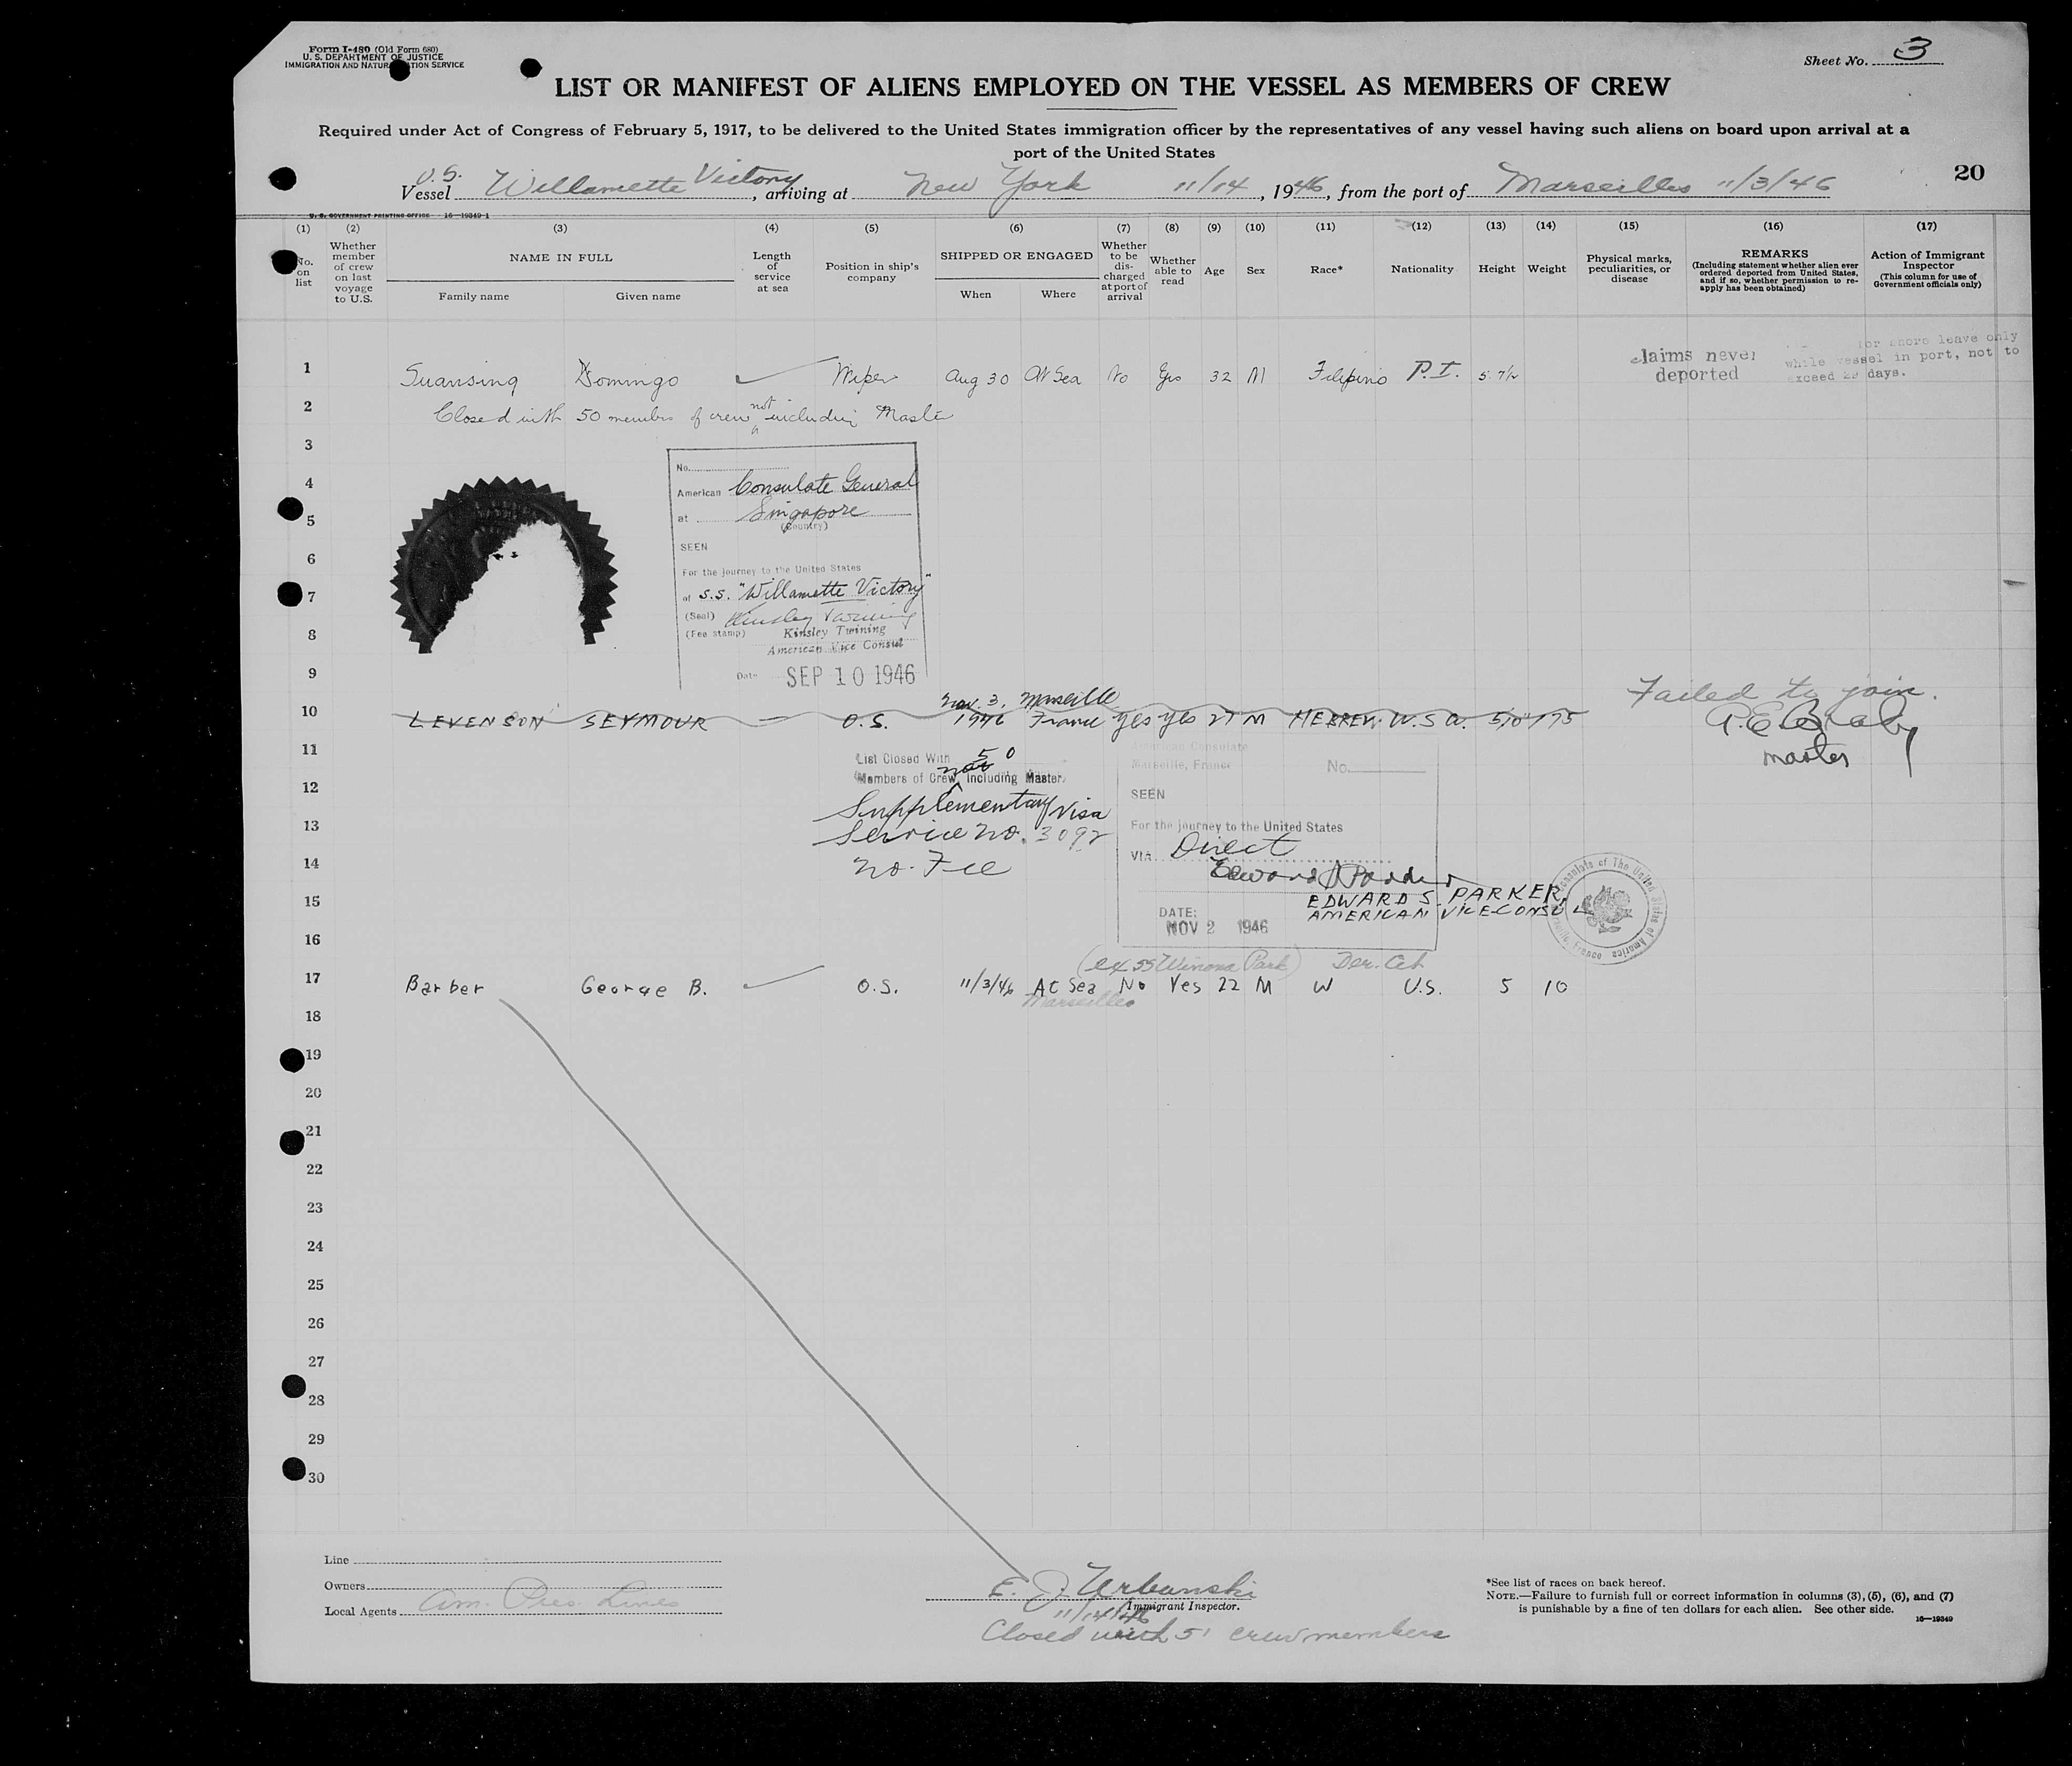 Form I-480 (Old Form 680)
U. S. DEPARTMENT OF JUSTICE
IMMIGRATION AND NATURALIZATION SERVICE
Sheet No. 3
LIST OR MANIFEST OF ALIENS EMPLOYED ON THE VESSEL AS MEMBERS OF CREW
Required under Act of Congress of February 5, 1917, to be delivered to the United States immigration officer by the representatives of any vessel having such aliens on board upon arrival at a
port of the United States
20
Vessel U.S. Willamette Victory, arriving at New York 11/14, 1946, from the port of Marseilles 11/3/46
U. S. GOVERNMENT PRINTING OFFICE 16—19349-1
(1) (2) (3) (4) (5) (6) (7) (8) (9) (10) (11) (12) (13) (14) (15) (16) (17)
No. on list
Whether member of crew on last voyage to U.S.
NAME IN FULL
Family name
Given name
Length of service at sea
Position in ship's company
SHIPPED OR ENGAGED
When
Where
Whether to be discharged at port of arrival
Whether able to read
Age
Sex
Race*
Nationality
Height
Weight
Physical marks, peculiarities, or disease
REMARKS
(Including statement whether alien ever ordered deported from United States, and if so, whether permission to reapply has been obtained)
Action of Immigrant Inspector
(This column for use of Government officials only)
1 Suansing Domingo Wiper Aug 30 At Sea No Yes 32 M Filipino P.I. 5 7½
claims never deported
for shore leave only
while vessel in port, not to
exceed 29 days.
2 Closed with 50 members of crew not including Master
3
No.
4
American Consulate General
5
at Singapore
(Country)
SEEN
6
For the journey to the United States
7
of S.S. "Willamette Victory"
(Seal) Kinsley Twining
8
(Fee stamp) Kinsley Twining
American Vice Consul
9
Date SEP 10 1946
Nov. 3, Marseille
Failed to join.
10 LEVENSON SEYMOUR — O.S. 1946 France Yes Yes 27 M HEBREW U.S.A. 5/10 175
Master
11
List Closed With 50
Members of Crew not Including Master
American Consulate
Marseille, France No.
12
SEEN
Supplementary Visa
13
For the journey to the United States
Service No. 3092
14
VIA Direct
No Fee
15
EDWARD S. PARKER,
AMERICAN VICE CONSUL
DATE:
NOV 2 1946
Consulate of The United States of America
Marseille, France
16
(ex SS Winona Park) Der. Cit
17 Barber George B. O.S. 11/3/46 At Sea No Yes 22 M W U.S. 5 10
Marseilles
18
19
20
21
22
23
24
25
26
27
28
29
30
Line
Owners
Local Agents Am. Pres. Lines
E. J. Urbanski
Immigrant Inspector.
11/14/46
Closed with 51 crewmembers
*See list of races on back hereof.
NOTE.—Failure to furnish full or correct information in columns (3), (5), (6), and (7)
is punishable by a fine of ten dollars for each alien. See other side.
16—19349